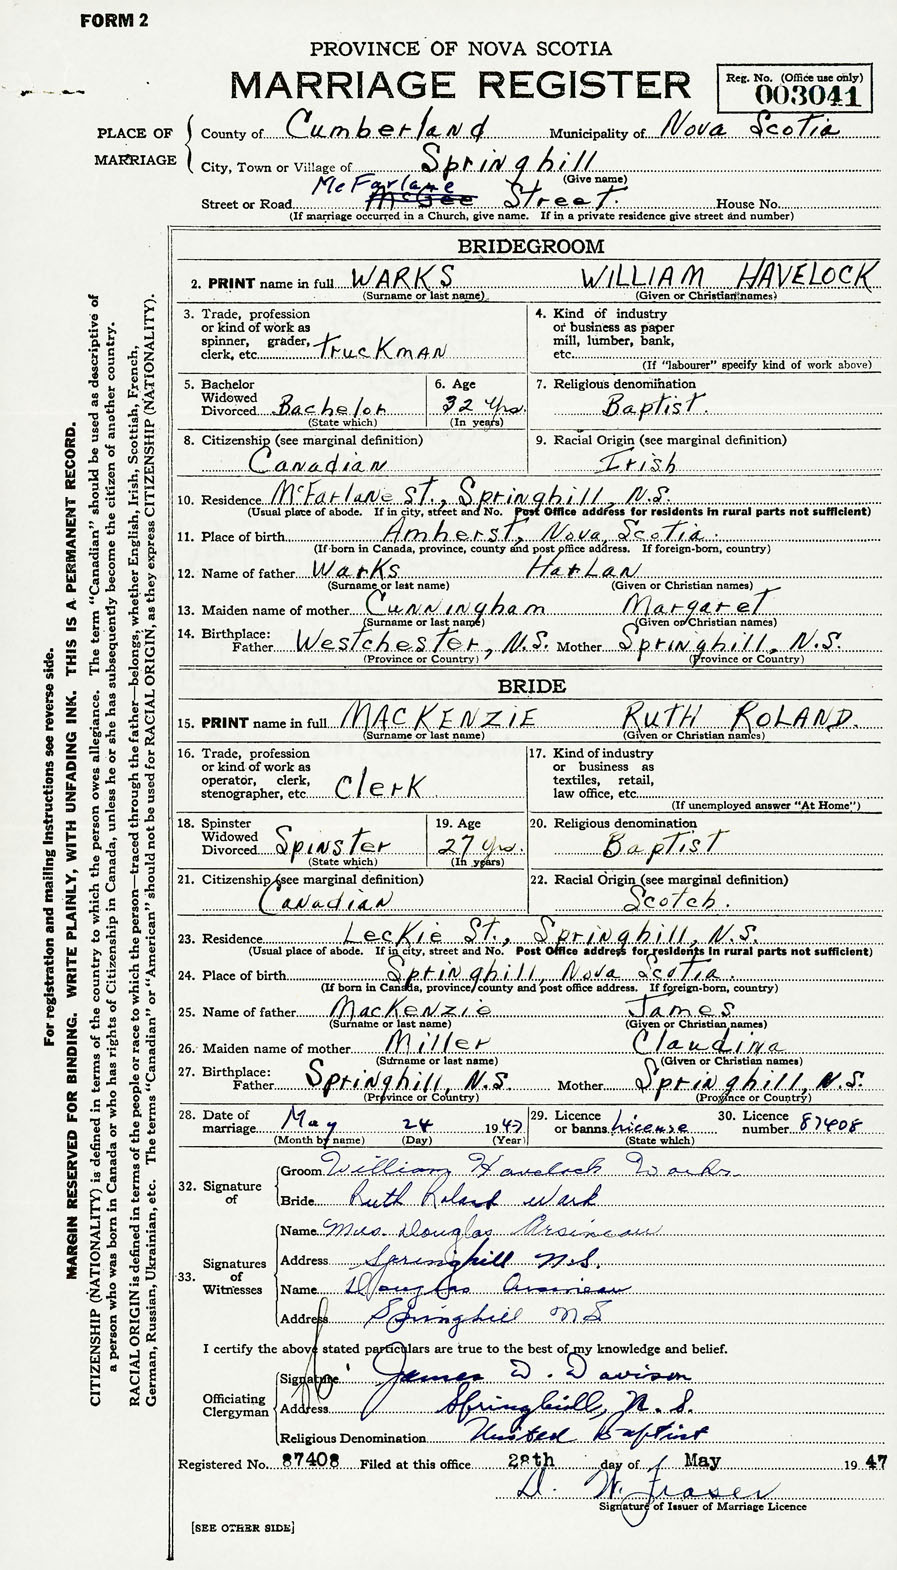 FORM 2
PROVINCE OF NOVA SCOTIA
MARRIAGE REGISTER
Reg. No. (Office use only)
003041
PLACE OF MARRIAGE
County of Cumberland Municipality of Nova Scotia
City, Town or Village of Springhill
(Give name)
McFarlane
Street or Road McGee Street. House No.
(If marriage occurred in a Church, give name. If in a private residence give street and number)
BRIDEGROOM
2. PRINT name in full WARKS WILLIAM HAVELOCK
(Surname or last name) (Given or Christian names)
3. Trade, profession or kind of work as spinner, grader, clerk, etc. Truckman
4. Kind of industry or business as paper mill, lumber, bank, etc.
(If "labourer" specify kind of work above)
5. Bachelor Widowed Divorced Bachelor
(State which)
6. Age 32 Yrs.
(In years)
7. Religious denomination
Baptist.
8. Citizenship (see marginal definition)
Canadian
9. Racial Origin (see marginal definition)
Irish
10. Residence McFarlane St., Springhill, N.S.
(Usual place of abode. If in city, street and No. Post Office address for residents in rural parts not sufficient)
11. Place of birth Amherst, Nova Scotia.
(If born in Canada, province, county and post office address. If foreign-born, country)
12. Name of father Warks Harlan
(Surname or last name) (Given or Christian names)
13. Maiden name of mother Cunningham Margaret
(Surname or last name) (Given or Christian names)
14. Birthplace: Father Westchester, N.S. Mother Springhill, N.S.
(Province or Country) (Province or Country)
BRIDE
15. PRINT name in full MACKENZIE RUTH ROLAND.
(Surname or last name) (Given or Christian names)
16. Trade, profession or kind of work as operator, clerk, stenographer, etc. Clerk
17. Kind of industry or business as textiles, retail, law office, etc.
(If unemployed answer "At Home")
18. Spinster Widowed Divorced Spinster
(State which)
19. Age 27 yrs.
(In years)
20. Religious denomination
Baptist
21. Citizenship (see marginal definition)
Canadian
22. Racial Origin (see marginal definition)
Scotch.
23. Residence Leckie St., Springhill, N.S.
(Usual place of abode. If in city, street and No. Post Office address for residents in rural parts not sufficient)
24. Place of birth Springhill, Nova Scotia.
(If born in Canada, province, county and post office address. If foreign-born, country)
25. Name of father MacKenzie James
(Surname or last name) (Given or Christian names)
26. Maiden name of mother Miller Claudina
(Surname or last name) (Given or Christian names)
27. Birthplace: Father Springhill, N.S. Mother Springhill, N.S.
(Province or Country) (Province or Country)
28. Date of marriage May 24 1947
(Month by name) (Day) (Year)
29. Licence or banns License
(State which)
30. Licence number 87408
32. Signature of
Groom William Havelock Warks
Bride Ruth Roland Wark
33. Signatures of Witnesses
Name Mrs. Douglas Arsineau
Address Springhill N.S.
Name Douglas Arsineau
Address Springhill NS
I certify the above stated particulars are true to the best of my knowledge and belief.
Officiating Clergyman
Signature James D. Davison
Address Springhill, N.S.
Religious Denomination United Baptist
Registered No. 87408 Filed at this office 28th day of May 1947
D. W. Fraser
Signature of Issuer of Marriage Licence
[SEE OTHER SIDE]
For registration and mailing instructions see reverse side.
MARGIN RESERVED FOR BINDING. WRITE PLAINLY, WITH UNFADING INK. THIS IS A PERMANENT RECORD.
CITIZENSHIP (NATIONALITY) is defined in terms of the country to which the person owes allegiance. The term "Canadian" should be used as descriptive of
a person who was born in Canada or who has rights of Citizenship in Canada, unless he or she has subsequently become the citizen of another country.
RACIAL ORIGIN is defined in terms of the people or race to which the person—traced through the father—belongs, whether English, Irish, Scottish, French,
German, Russian, Ukrainian, etc. The terms "Canadian" or "American" should not be used for RACIAL ORIGIN, as they express CITIZENSHIP (NATIONALITY).